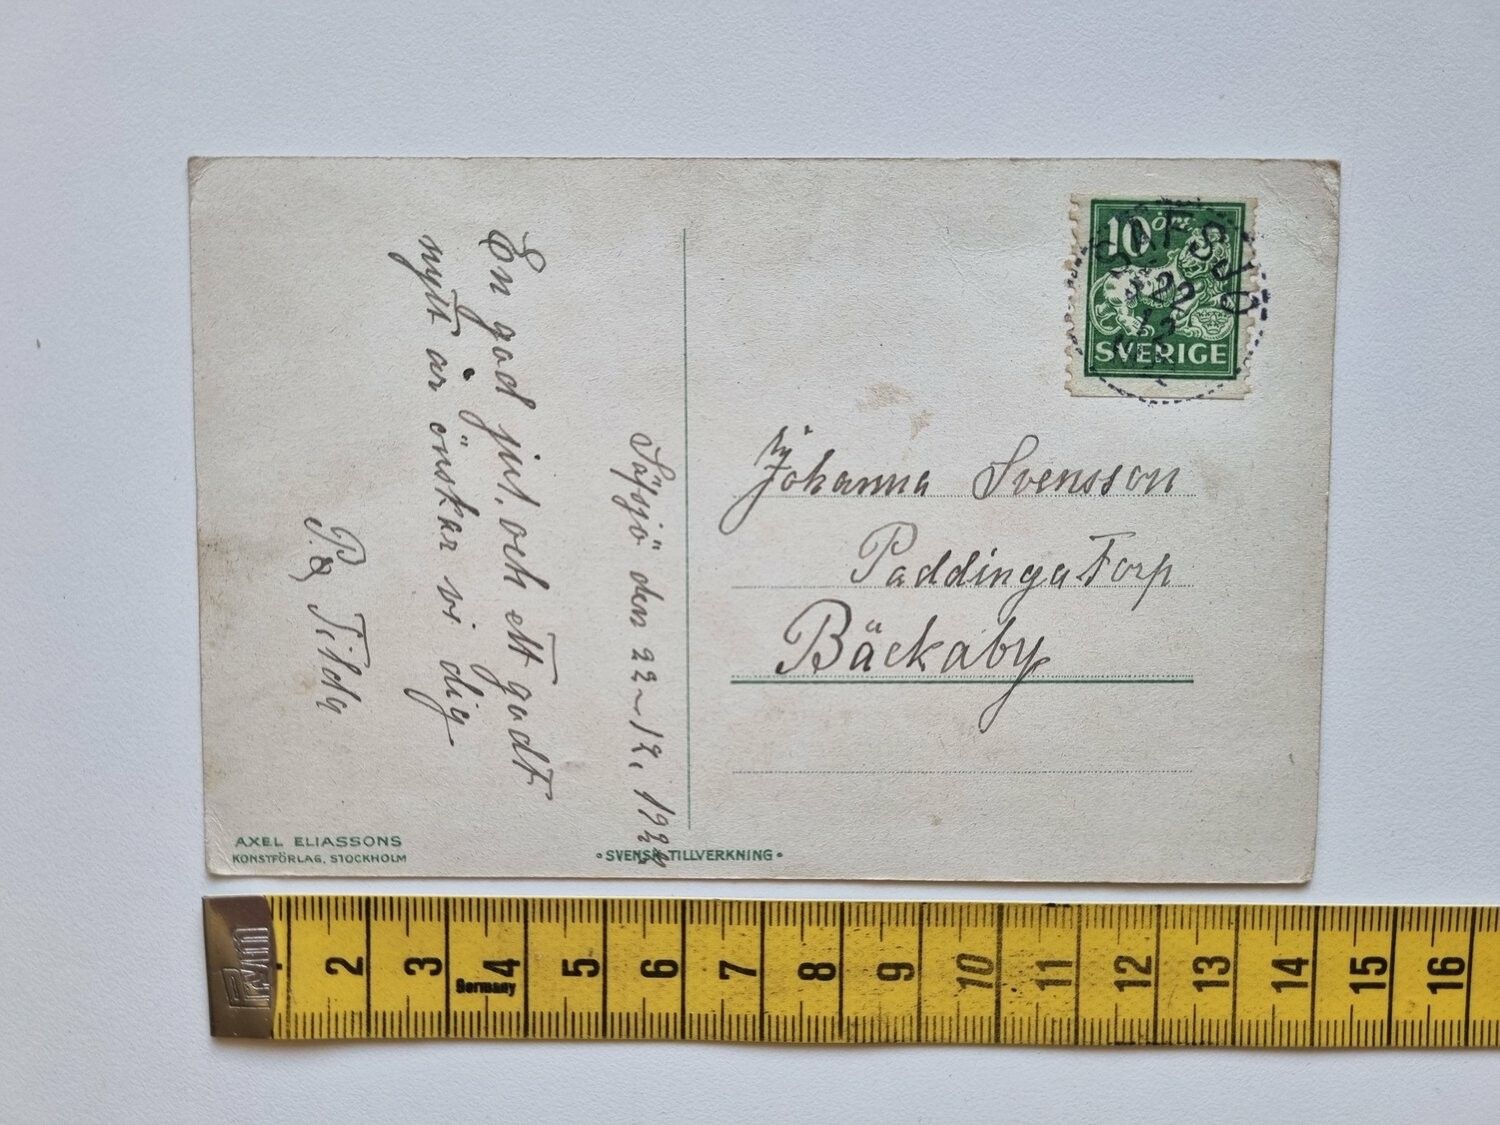 En god jul, och ett godt
nytt år önskar vi dig
P. & Tilda
Säfsjö den 22-12, 1922
10 ÖRE
SVERIGE
SÄFSJÖ
22
12
Johanna Svensson
Paddinga Torp
Bäckaby
AXEL ELIASSONS
KONSTFÖRLAG, STOCKHOLM
• SVENSK TILLVERKNING •
Prym
2 3 4 5 6 7 8 9 10 11 12 13 14 15 16
Germany